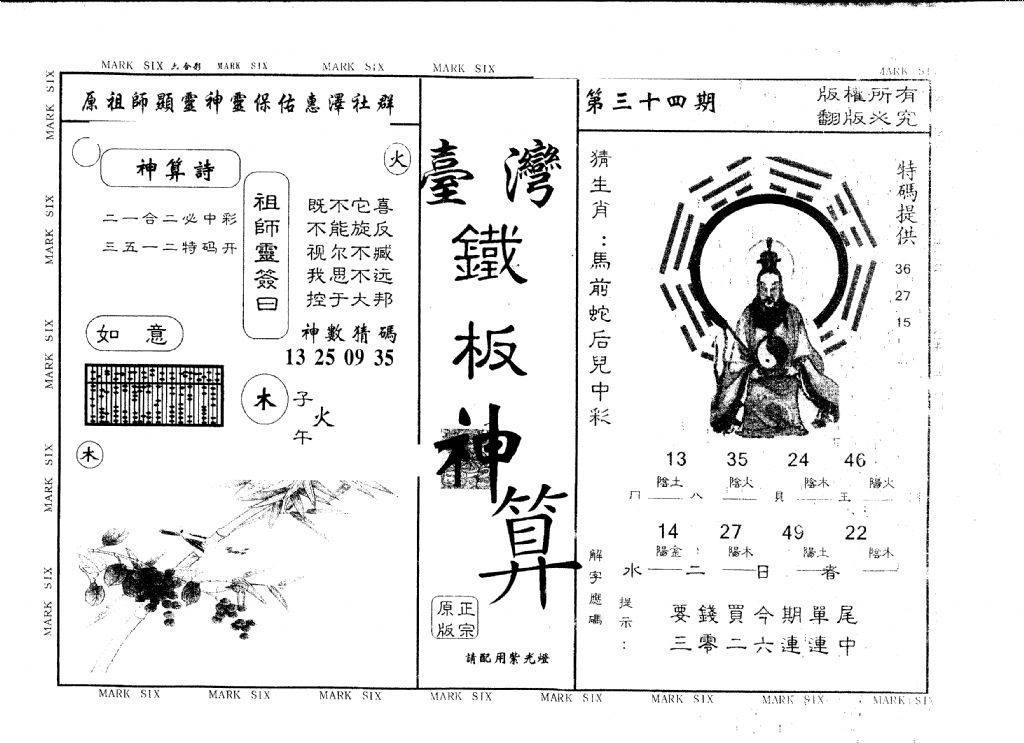 MARK SIX 六合彩 MARK SIX MARK SIX MARK SIX MARK SIX
MARK SIX
MARK SIX
MARK SIX
MARK SIX
MARK SIX
原祖師顯靈神靈保佑惠澤社群
神算詩
火
二一合二必中彩
三五一二特码开
祖師靈簽曰
既不它喜
不能旋反
视尔不臧
我思不远
控于大邦
神數猜碼
13 25 09 35
如意
木
子
火
午
木
臺灣
鐵
板
神
算
原正
版宗
請配用紫光燈
第三十四期
版權所有
翻版必究
猜生肖：馬前蛇后兒中彩
特碼提供
36
27
15
13 35 24 46
陰土 陰火 陰木 陽火
八 貝 王
14 27 49 22
陽金 陽木 陽土 陰木
水 二 日 春
解字應碼
提示：
要錢買今期單尾
三零二六連連中
MARK SIX MARK SIX MARK SIX MARK SIX MARK SIX MARK SIX MARK SIX MARK SIX